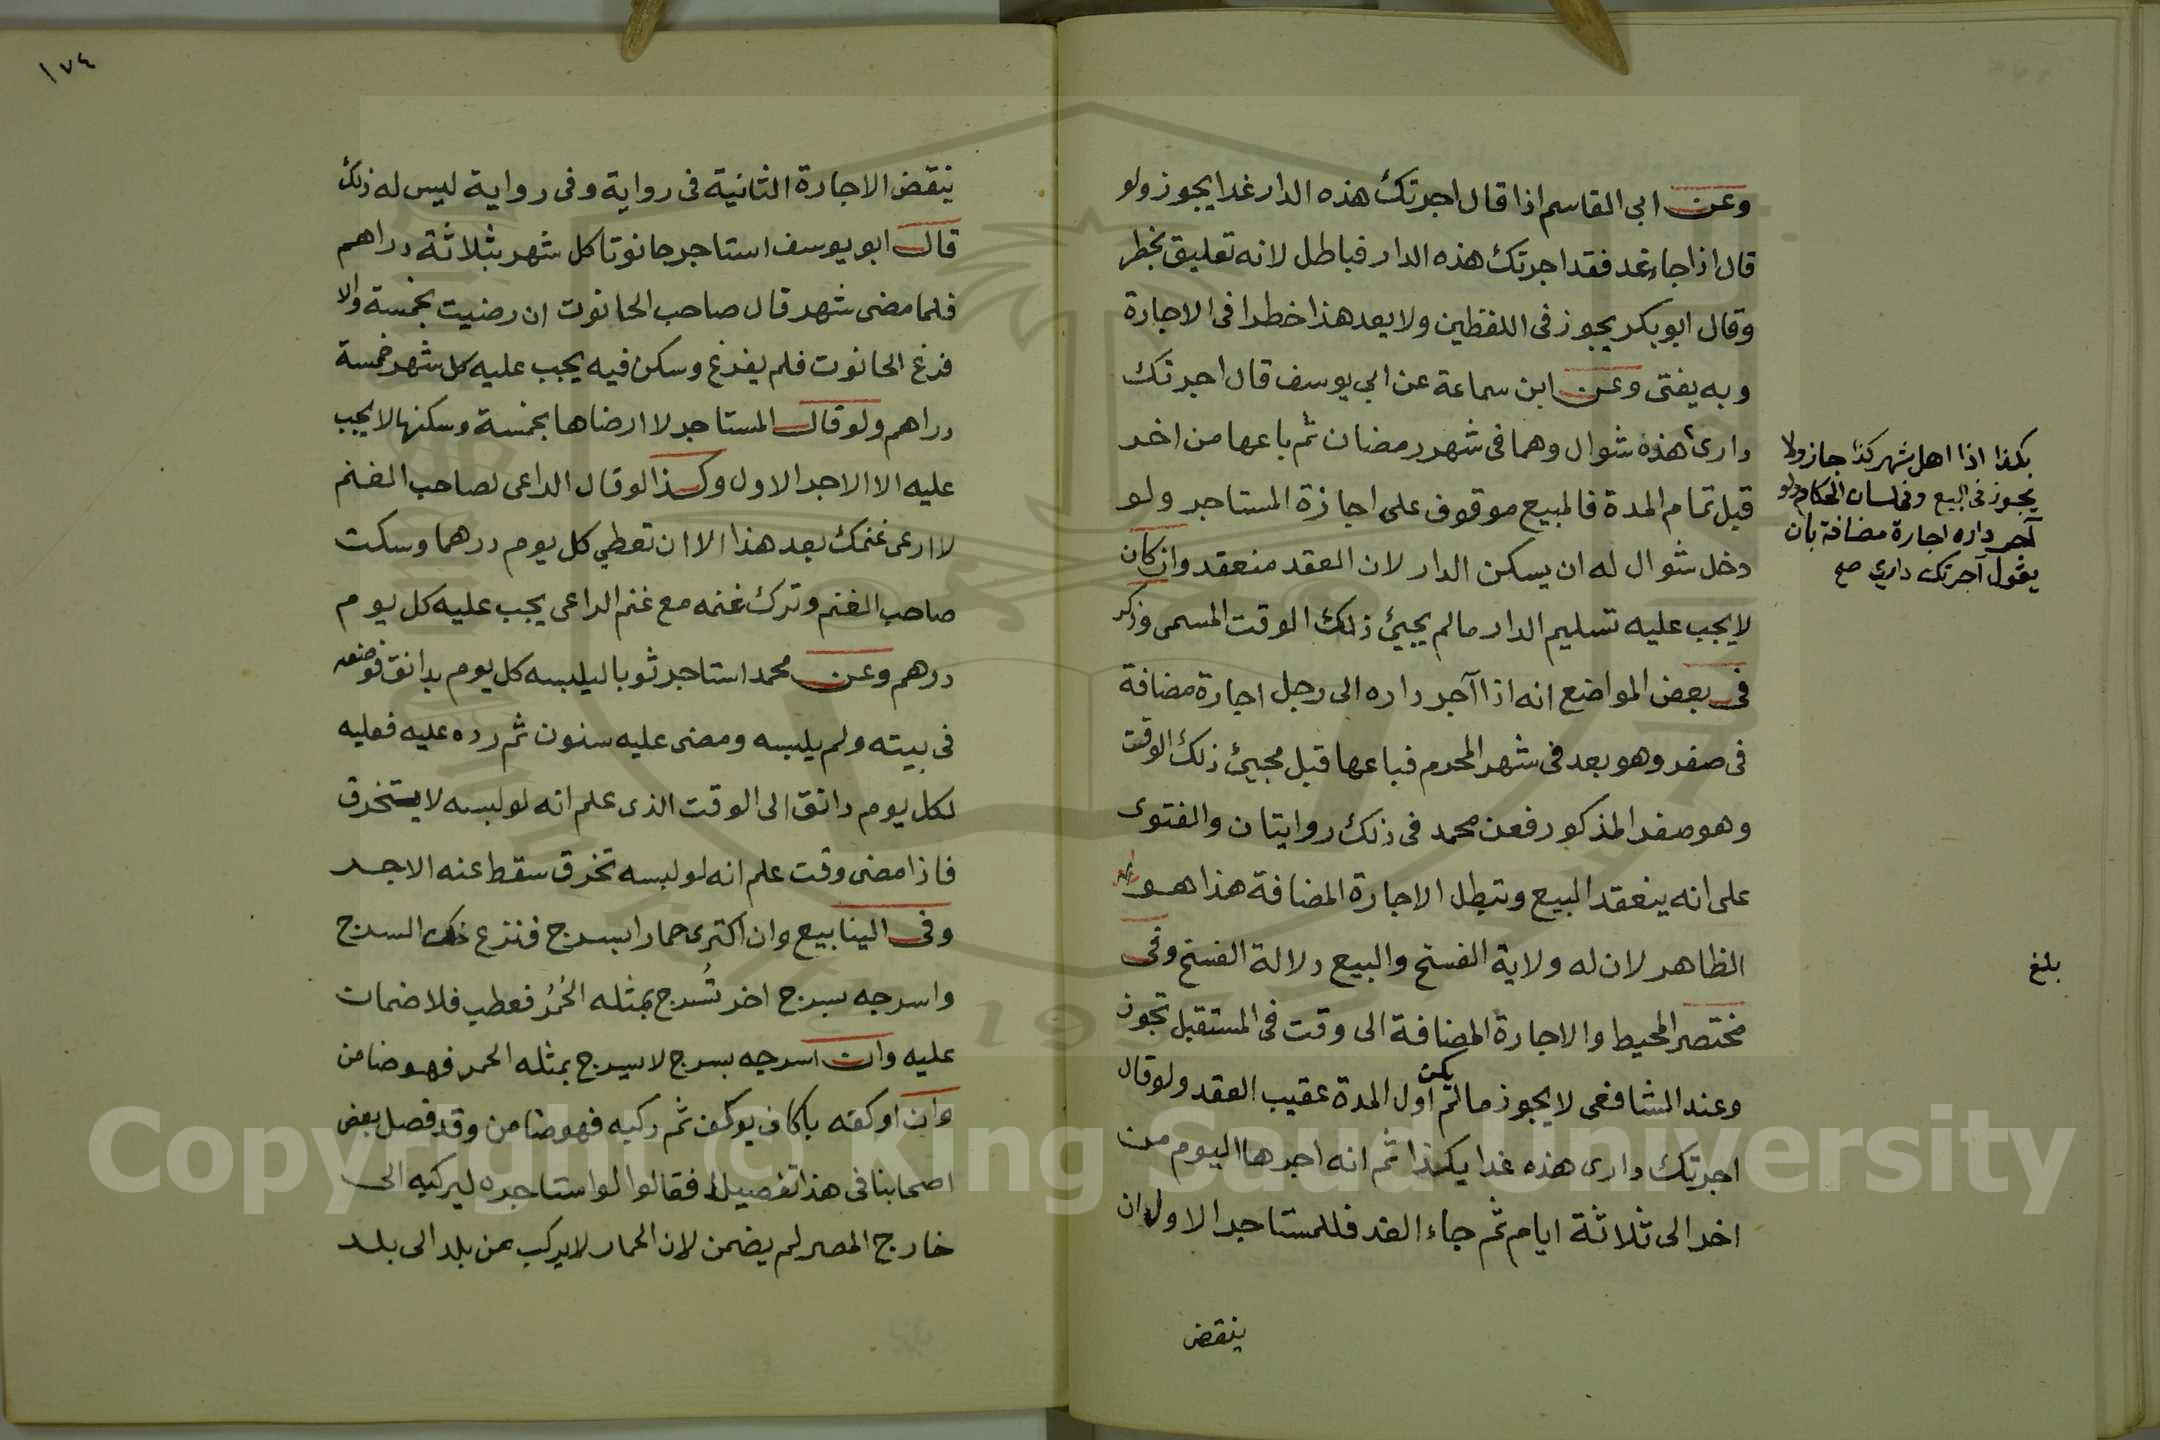 وعن ابي القاسم اذا قال اجرتك هذه الدار غدا يجوز ولو
قال اذا جاء غد فقد اجرتك هذه الدار فباطل لانه تعليق بخطر
وقال ابو بكر يجوز في اللفظين ولا يعد هذا خطرا في الاجارة
وبه يفتى وعن ابن سماعة عن ابي يوسف قال اجرتك
داري هذه شوال وهما في شهر رمضان ثم باعها من اخر
قبل تمام المدة فالمبيع موقوف على اجازة المستاجر ولو
دخل شوال له ان يسكن الدار لان العقد منعقد وان كان
لا يجب عليه تسليم الدار مالم يجيئ ذلك الوقت المسمى وذكر
في بعض المواضع انه اذا آجر داره الى رجل اجارة مضافة
في صفر وهو بعد في شهر المحرم فباعها قبل مجيئ ذلك الوقت
وهو صفر المذكور فعن محمد في ذلك روايتان والفتوى
على انه ينعقد البيع وتبطل الاجارة المضافة هذا هو
الظاهر لان له ولاية الفسخ والبيع دلالة الفسخ وفي
مختصر المحيط والاجارة المضافة الى وقت في المستقبل تجوز
وعند الشافعي لا يجوز مالم يكن اول المدة عقيب العقد ولو قال
اجرتك داري هذه غدا بكذا ثم انه اجرها اليوم من
اخر الى ثلاثة ايام ثم جاء الغد فللمستاجر الاول ان
ينقض
بكذا اذا اهل شهر كذا جاز ولا
يجوز في البيع وفي لسان الحكام ولو
آجر داره اجارة مضافة بان
يقول آجرتك داري صح
بلغ
١٧٤
ينقض الاجارة الثانية في رواية وفي رواية ليس له ذلك
قال ابو يوسف استاجر حانوتا كل شهر بثلاثة دراهم
فلما مضى شهر قال صاحب الحانوت ان رضيت بخمسة والا
فرغ الحانوت فلم يفرغ وسكن فيه يجب عليه كل شهر خمسة
دراهم ولو قال المستاجر لا ارضاها بخمسة وسكنها لا يجب
عليه الا الاجر الاول وكذا لو قال الراعي لصاحب الغنم
لا ارعى غنمك بعد هذا الا ان تعطي كل يوم درهما وسكت
صاحب الغنم وترك غنمه مع غنم الراعي يجب عليه كل يوم
درهم وعن محمد استاجر ثوبا ليلبسه كل يوم بدانق فوضعه
في بيته ولم يلبسه ومضى عليه سنون ثم رده عليه فعليه
لكل يوم دانق الى الوقت الذي علم انه لو لبسه لا يتخرق
فاذا مضى وقت علم انه لو لبسه تخرق سقط عنه الاجر
وفي الينابيع وان اكترى حمارا بسرج فنزع ذلك السرج
واسرجه بسرج اخر تُسرج بمثله الحُمُر فعطب فلا ضمان
عليه وان اسرجه بسرج لا يسرج بمثله الحمر فهو ضامن
وان اوكفه باكاف يوكف ثم ركبه فهو ضامن وقد فصل بعض
اصحابنا في هذا تفصيلا فقالوا لو استاجره ليركبه الى
خارج المصر لم يضمن لان الحمار لا يركب من بلد الى بلد
Copyright © King Saud University